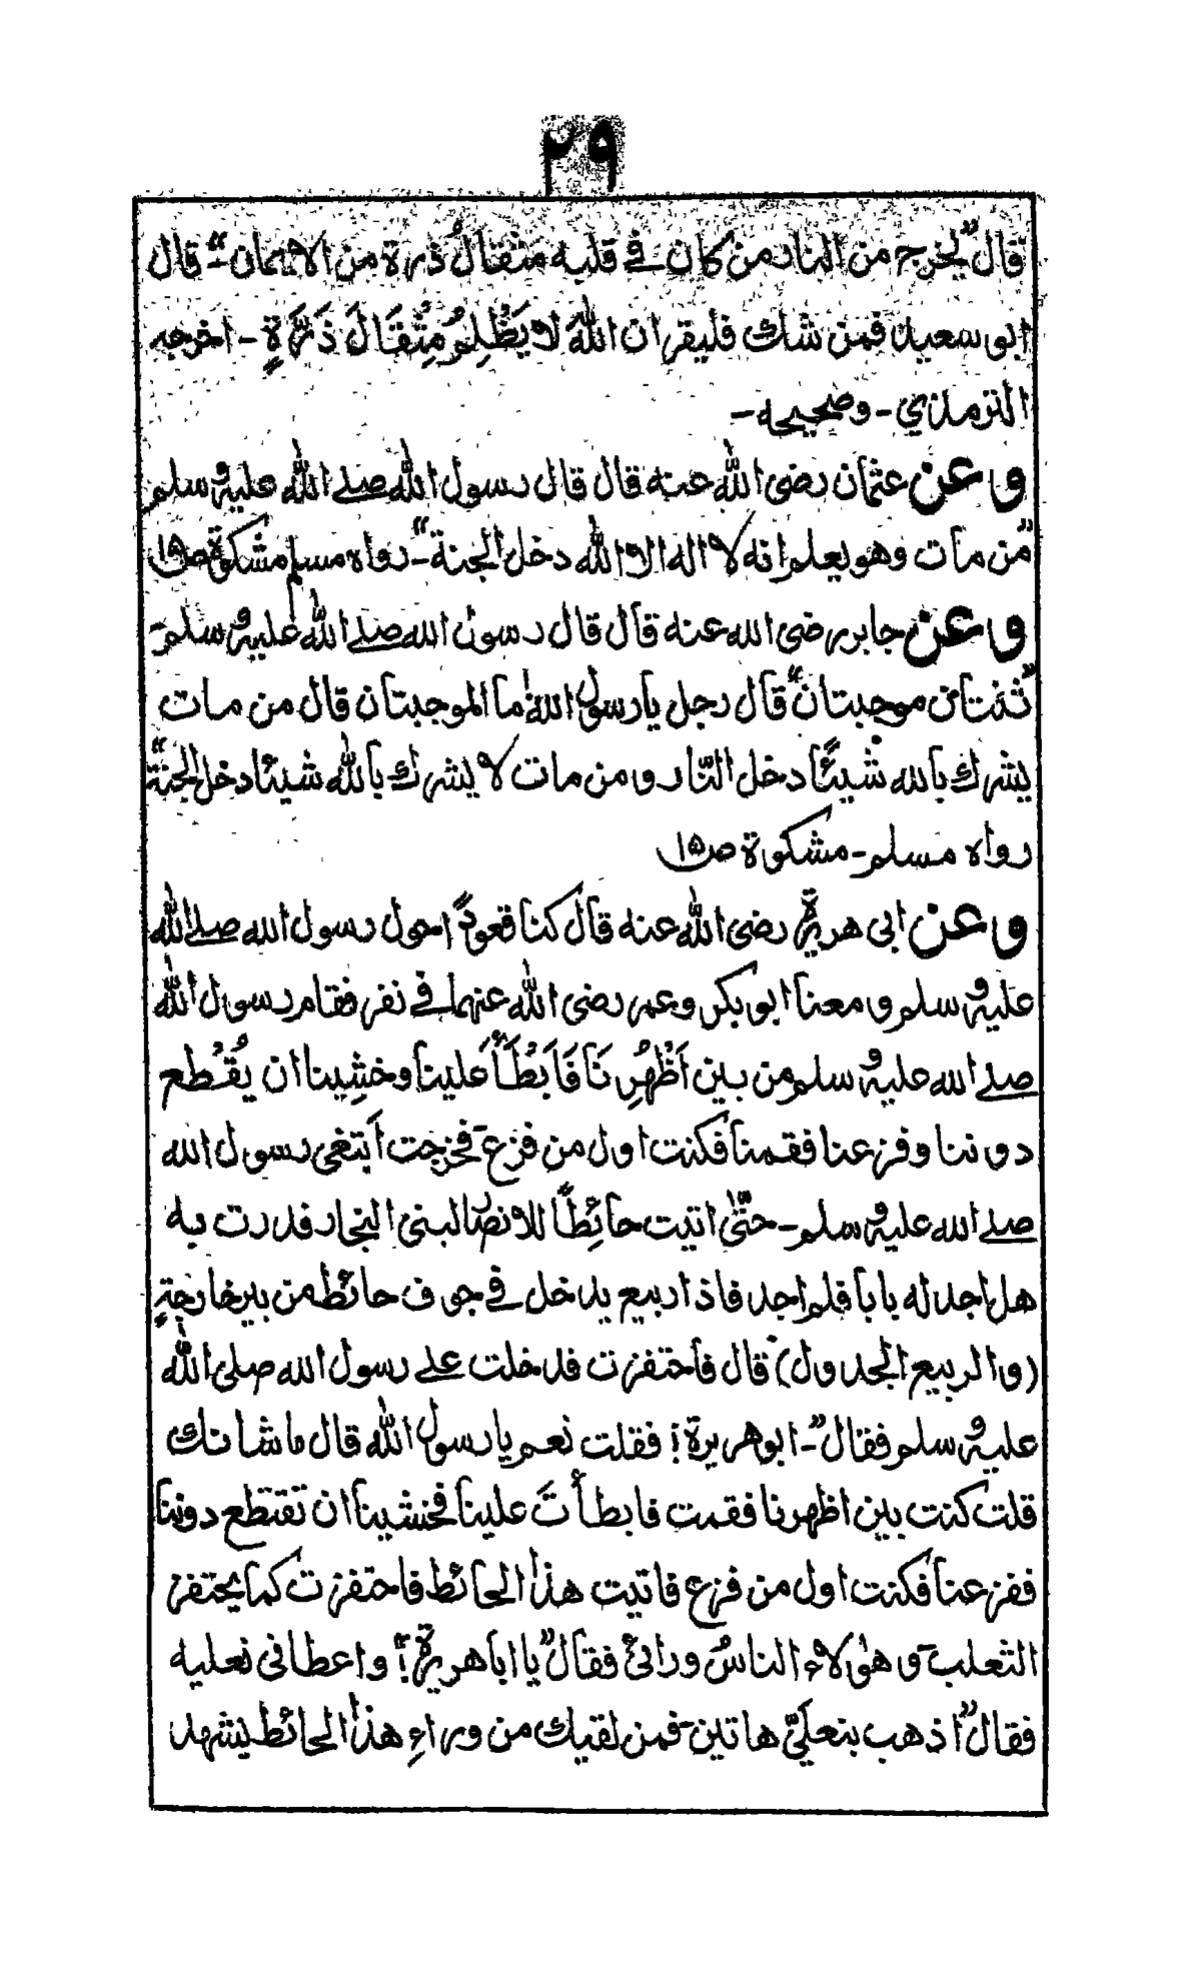 ٢٩
قال "يخرج من النار من كان في قلبه مثقالُ ذرة من الايمان"۔ قال
ابو سعيد فمن شك فليقرا ان اللهَ لا يَظْلِمُ مِثْقَالَ ذَرَّةٍ ۔ اخرجه
الترمذي ۔ وصححه ۔
وعن عثمان رضى الله عنه قال قال رسول الله صلے الله عليه وسلم
"من مات وهو يعلم انه لا اله الا الله دخل الجنة"۔ رواه مسلم مشكوة ص١٥
وعن جابر رضى الله عنه قال قال رسول الله صلے الله عليه وسلم
"ثنتان موجبتان" قال رجل يا رسول الله ما الموجبتان قال من مات
يشرك بالله شيئًا دخل النّار ومن مات لا يشرك بالله شيئا دخل الجنة"
رواه مسلم ۔ مشكوة ص١٥
وعن ابى هريرة رضى الله عنه قال كنا قعودًا حول رسول الله صلے الله
عليه وسلم ومعنا ابو بكر وعمر رضى الله عنهما في نفر فقام رسول الله
صلے الله عليه وسلم من بين اَظْهُرِنَا فَاَبْطَأَ علينا وخشِينا ان يُقْطع
دوننا وفزعنا فقمنا فكنت اول من فزع فخرجت اَبتغى رسول الله
صلے الله عليه وسلم ۔ حتّٰى اتيت حائِطًا للانصار لبنى النجار فدرت به
هل اجد له بابا فلم اجد فاذا ربيع يدخل في جوف حائط من بير خارجةٍ
(والربيع الجدول) قال فاحتفزت فدخلت علے رسول الله صلى الله
عليه وسلم فقال"۔ ابو هريرة؟ فقلت نعم يا رسول الله قال ما شانك
قلت كنت بين اظهرنا فقمت فابطأتَ علينا فخشينا ان تقتطع دوننا
ففزعنا فكنت اول من فزع فاتيت هذا الحائط فاحتفزت كما يحتفز
الثعلب وهٰؤلاء الناسُ ورائى فقال "يا ابا هريرة؟ واعطانى نعليه
فقال "اذهب بنعلَيّ هاتين فمن لقيك من وراءِ هذا الحائط يشهد